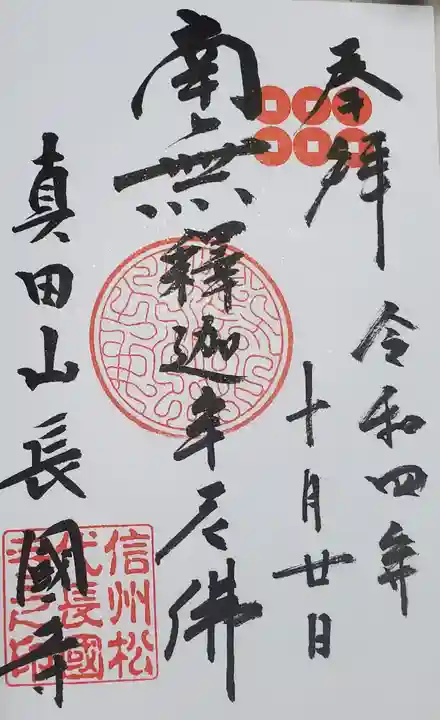 奉拝
令和四年
十月廿日
南無釋迦牟尼佛
真田山長國寺
信州松
代長國
寺之印